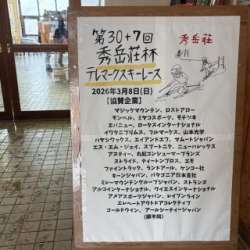 第30+7回
秀岳荘杯
テレマークスキーレース
秀岳荘
2026年3月8日(日)
【協賛企業】
マジックマウンテン、ロストアロー
モンベル、ミヤコスポーツ、モチヅキ
エバニュー、ロータスインターナショナル
イワタニプリムス、フルマークス、山本光学
ハヤシワックス、エイアンドエフ、ムラートジャパン
エス・エム・ジェイ、スプートニク、ニューハレックス
アヌティー、丸紅コンシューマーブランズ
ストライド、ティートンブロス、エモ
ファイントラック、ランドアール、ケンコー社
キーンジャパン、パタゴニア日本支社
ミレーマウンテングループジャパン、ストランズ
アルコインターナショナル、ワイエスインターナショナル
アメアスポーツジャパン、レイブンライン
エレベートアウトドアコレクティブ
ゴールドウイン、アールシーティージャパン
(順不同)